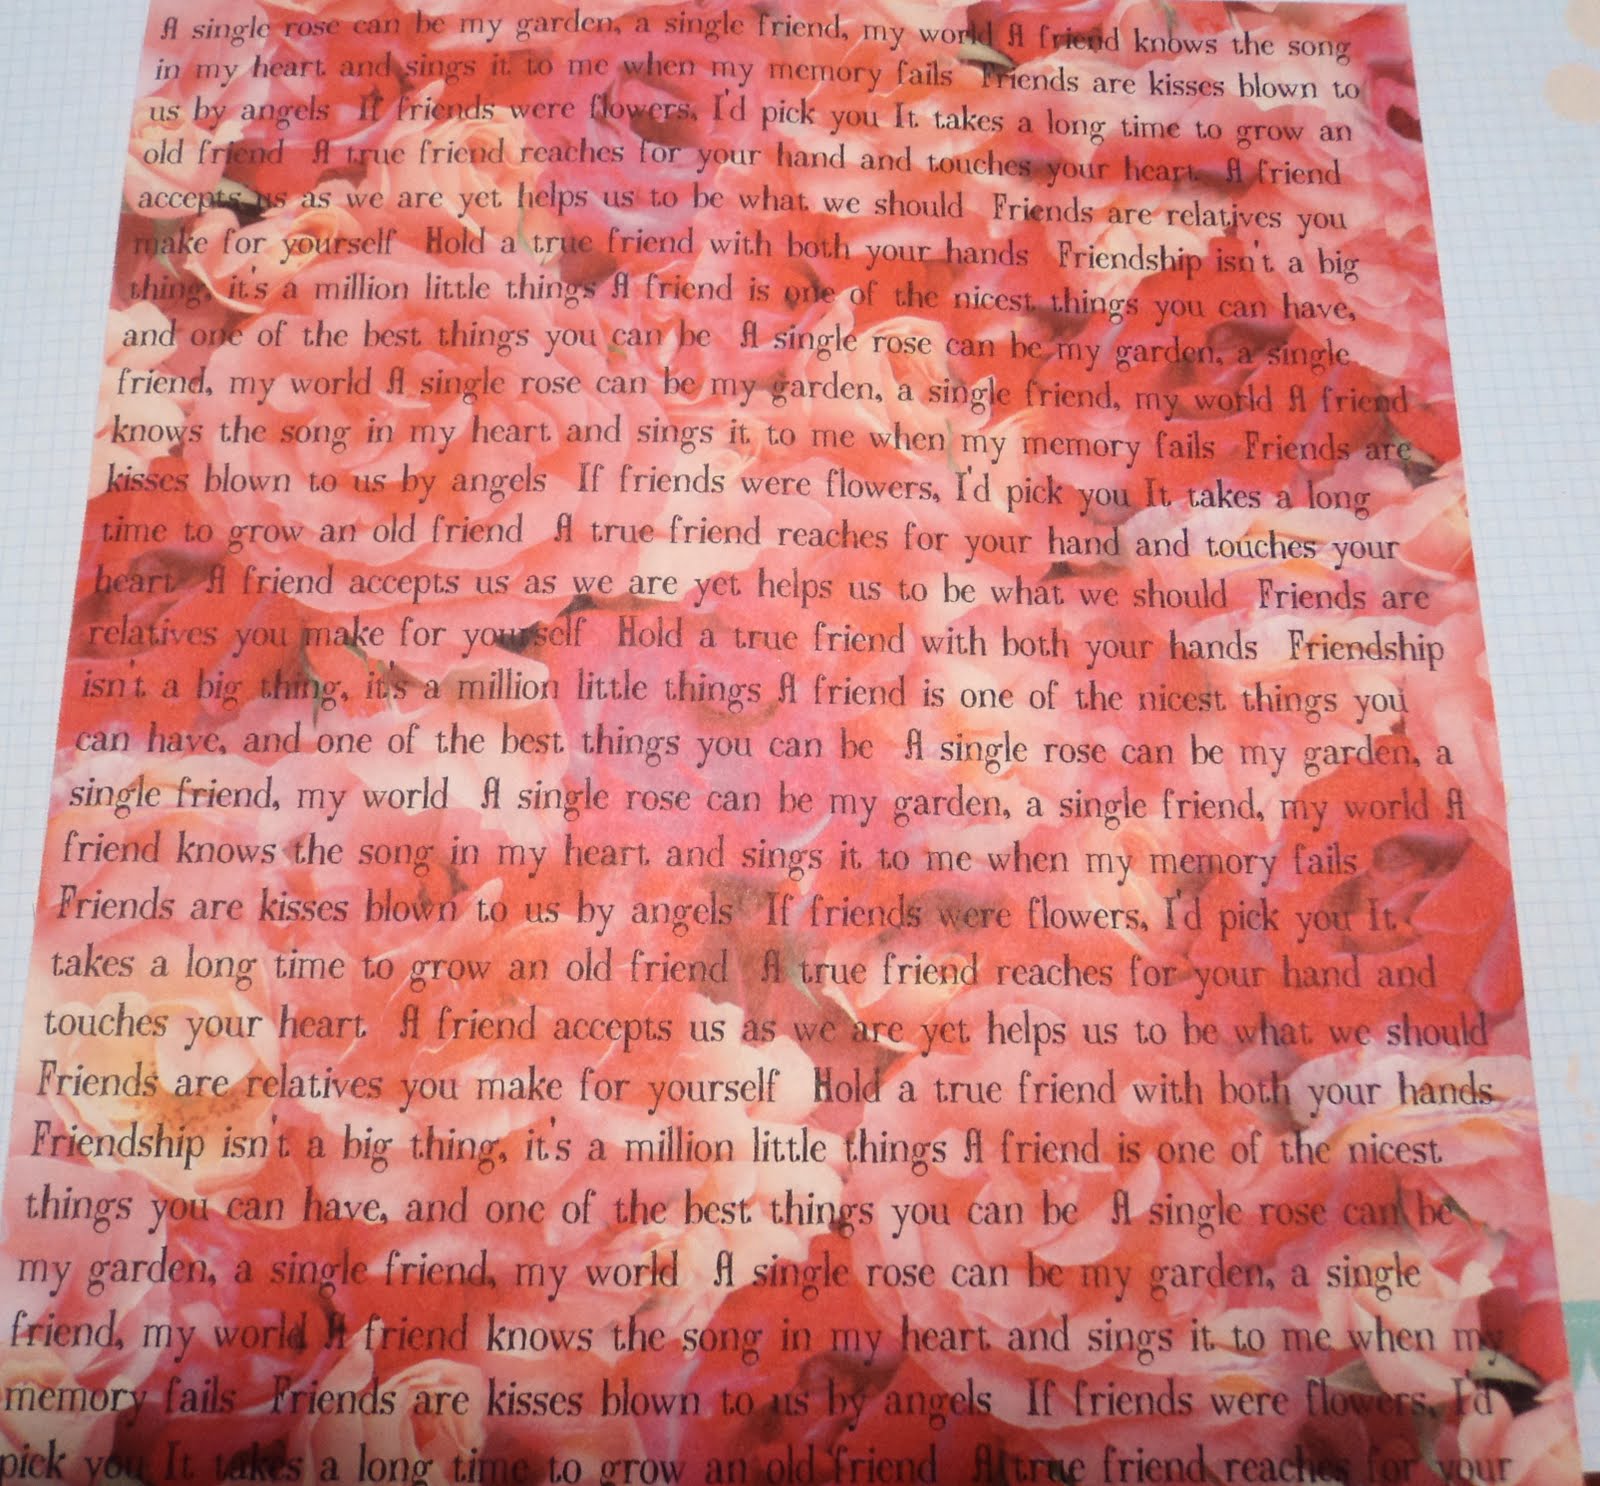 A single rose can be my garden, a single friend, my world A friend knows the song
in my heart and sings it to me when my memory fails Friends are kisses blown to
us by angels If friends were flowers, I'd pick you It takes a long time to grow an
old friend A true friend reaches for your hand and touches your heart A friend
accepts us as we are yet helps us to be what we should Friends are relatives you
make for yourself Hold a true friend with both your hands Friendship isn't a big
thing, it's a million little things A friend is one of the nicest things you can have,
and one of the best things you can be A single rose can be my garden, a single
friend, my world A single rose can be my garden, a single friend, my world A friend
knows the song in my heart and sings it to me when my memory fails Friends are
kisses blown to us by angels If friends were flowers, I'd pick you It takes a long
time to grow an old friend A true friend reaches for your hand and touches your
heart A friend accepts us as we are yet helps us to be what we should Friends are
relatives you make for yourself Hold a true friend with both your hands Friendship
isn't a big thing, it's a million little things A friend is one of the nicest things you
can have, and one of the best things you can be A single rose can be my garden, a
single friend, my world A single rose can be my garden, a single friend, my world A
friend knows the song in my heart and sings it to me when my memory fails
Friends are kisses blown to us by angels If friends were flowers, I'd pick you It
takes a long time to grow an old friend A true friend reaches for your hand and
touches your heart A friend accepts us as we are yet helps us to be what we should
Friends are relatives you make for yourself Hold a true friend with both your hands
Friendship isn't a big thing, it's a million little things A friend is one of the nicest
things you can have, and one of the best things you can be A single rose can be
my garden, a single friend, my world A single rose can be my garden, a single
friend, my world A friend knows the song in my heart and sings it to me when my
memory fails Friends are kisses blown to us by angels If friends were flowers, I'd
pick you It takes a long time to grow an old friend A true friend reaches for your